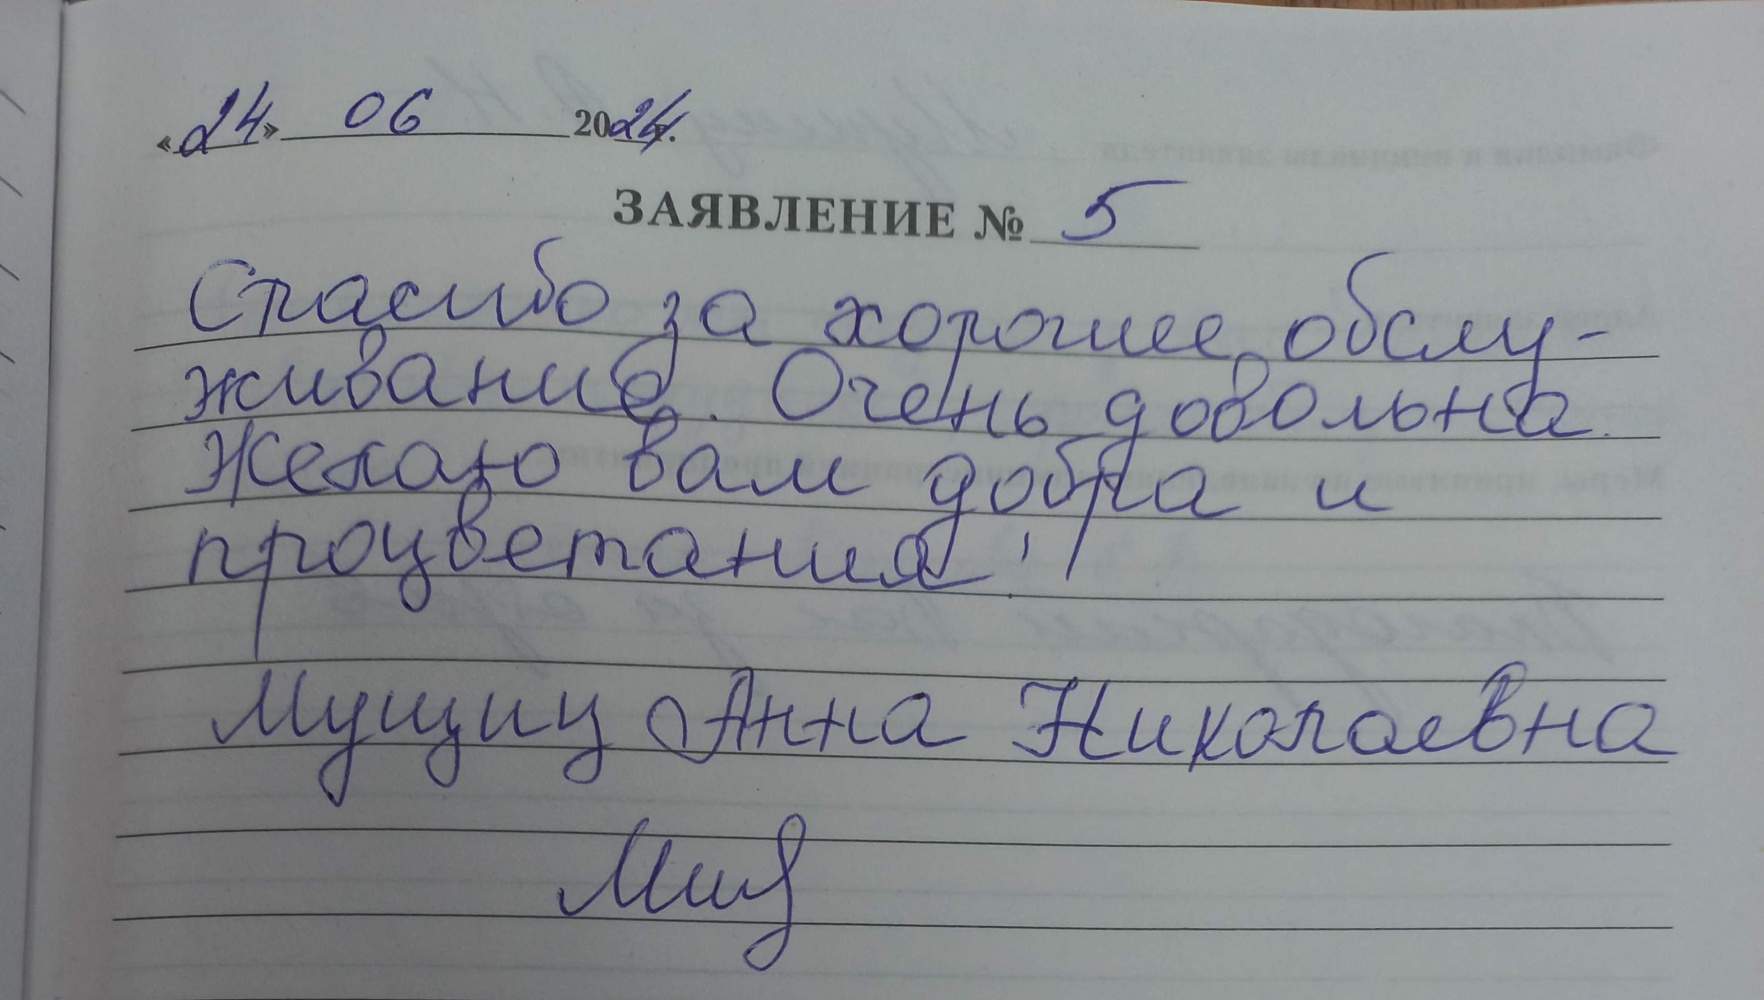 «24» 06 2024г.
ЗАЯВЛЕНИЕ № 5
Спасибо за хорошее обслу-
живание. Очень довольна.
Желаю вам добра и
процветания!
Мущиц Анна Николаевна